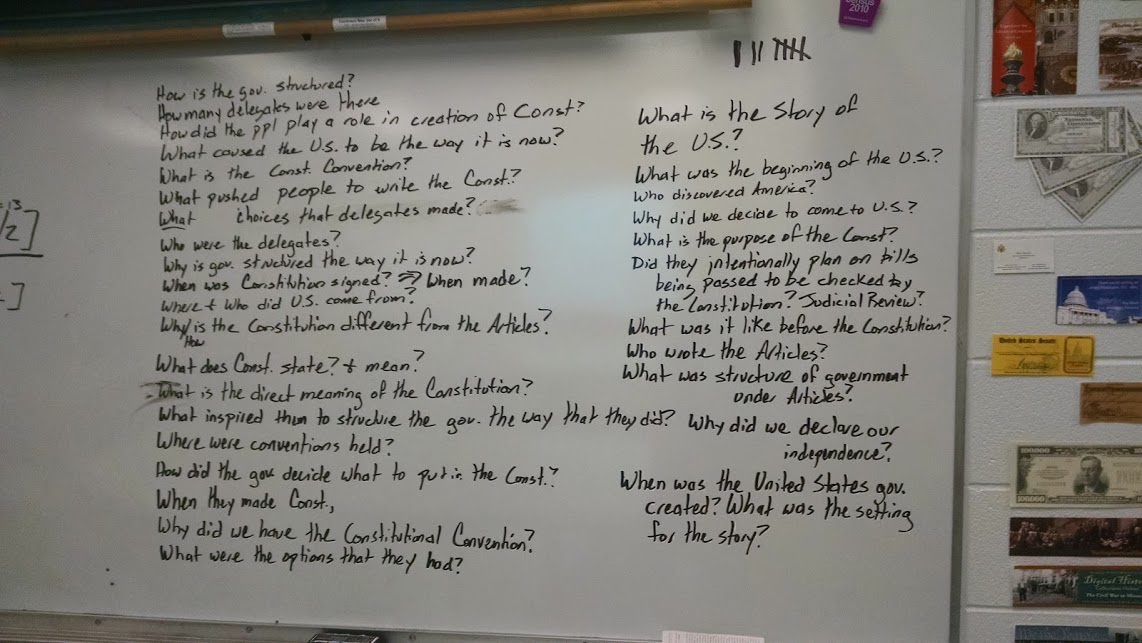 Census
2010
How is the gov. structured?
How many delegates were there
How did the ppl play a role in creation of Const?
What caused the U.S. to be the way it is now?
What is the Const. Convention?
What pushed people to write the Const.?
What choices that delegates made?
Who were the delegates?
Why is gov. structured the way it is now?
When was Constitution signed? => When made?
Where + Who did U.S. come from?
Why/ is the Constitution different from the Articles?
How
What does Const. state? + mean?
- What is the direct meaning of the Constitution?
What inspired them to structure the gov. the way that they did?
Where were conventions held?
How did the gov decide what to put in the Const.?
When they made Const.,
Why did we have the Constitutional Convention?
What were the options that they had?
What is the Story of
the U.S.?
What was the beginning of the U.S.?
Who discovered America?
Why did we decide to come to U.S.?
What is the purpose of the Const?
Did they intentionally plan on bills
being passed to be checked by
the Constitution? Judicial Review?
What was it like before the Constitution?
Who wrote the Articles?
What was structure of government
under Articles?
Why did we declare our
independence?
When was the United States gov.
created? What was the setting
for the story?
13
/2]
]
United States Senate
100000
100000
Digital History
The Civil War in